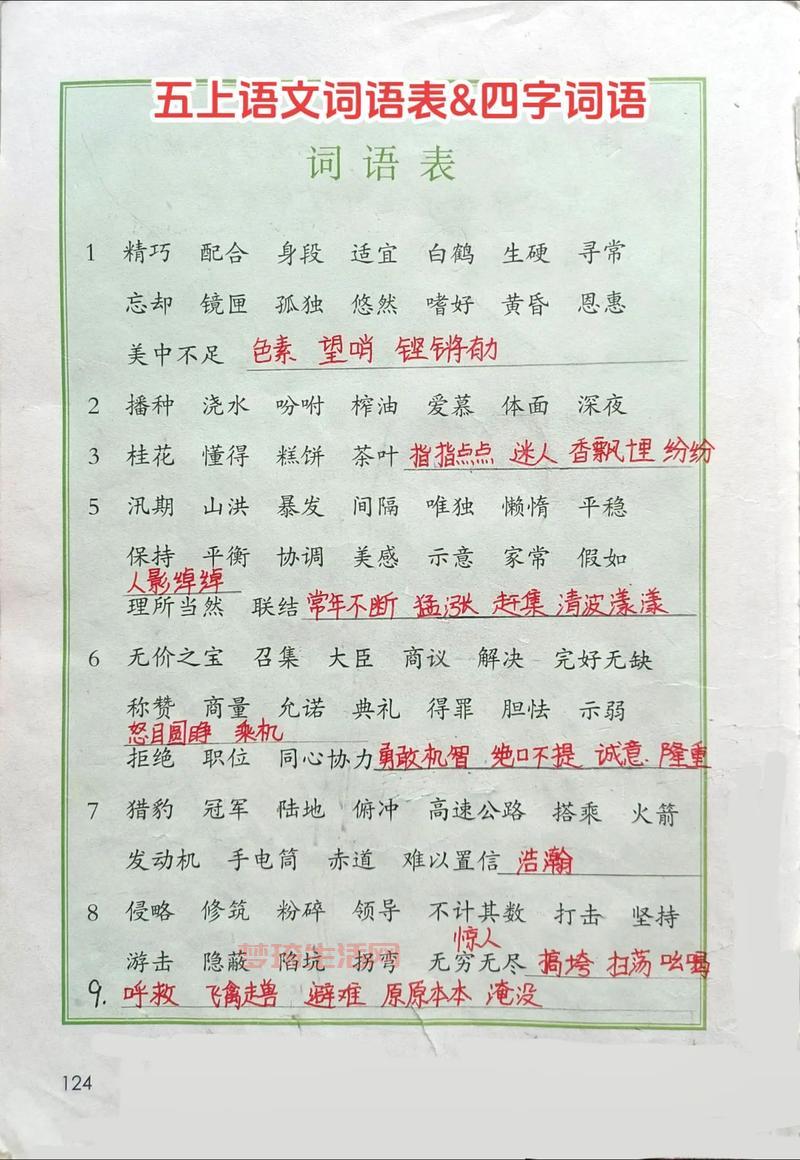 五上语文词语表&四字词语
词语表
1 精巧 配合 身段 适宜 白鹤 生硬 寻常
忘却 镜匣 孤独 悠然 嗜好 黄昏 恩惠
美中不足 色素 望哨 铿锵有劲
2 播种 浇水 吩咐 榨油 爱慕 体面 深夜
3 桂花 懂得 糕饼 茶叶 指指点点 迷人 香飘 纷纷
5 汛期 山洪 暴发 间隔 唯独 懒惰 平稳
保持 平衡 协调 美感 示意 家常 假如
人影绰绰
理所当然 联结 常年不断 猛涨 赶集 清波漾漾
6 无价之宝 召集 大臣 商议 解决 完好无缺
称赞 商量 允诺 典礼 得罪 胆怯 示弱
怒目圆睁 乘机
拒绝 职位 同心协力 勇敢机智 绝口不提 诚意 隆重
7 猎豹 冠军 陆地 俯冲 高速公路 搭乘 火箭
发动机 手电筒 赤道 难以置信 浩瀚
8 侵略 修筑 粉碎 领导 不计其数 打击 坚持
惊人
游击 隐蔽 陷坑 拐弯 无穷无尽 搞垮 扫荡 吆喝
梦琦生活网
9. 呼救 飞禽走兽 避难 原原本本 淹没
124